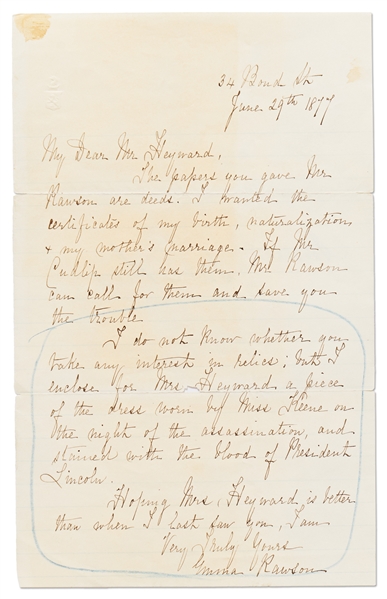 34 Bond St
June 29th 1877
My Dear Mr Heyward,
The papers you gave Mr
Rawson are deeds. I wanted the
certificates of my birth, naturalization,
& my mother's marriage. If Mr
Cudlip still has them, Mr Rawson
can call for them and save you
the trouble
I do not know whether you
take any interest in relics; but I
enclose for Mrs. Heyward a piece
of the dress worn by Miss Keene on
the night of the assassination, and
stained with the blood of President
Lincoln.
Hoping Mrs. Heyward is better
than when I last saw you, I am
Very Truly Yours
Emma Rawson